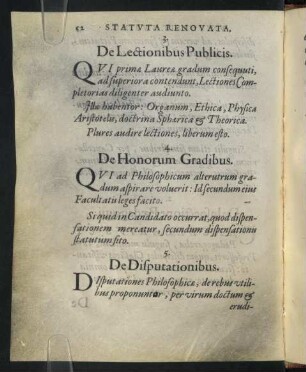 52 STATVTA RENOVATA.
3.
De Lectionibus Publicis.
QVI prima Laureæ gradum consequuti,
ad superiora contendunt, Lectiones Com-
pletorias diligenter audiunto.
Illæ habentor: Organum, Ethica, Physica
Aristotelis, doctrina Sphærica & Theorica.
Plures audire lectiones, liberum esto.
4.
De Honorum Gradibus.
QVI ad Philosophicum alterutrum gra-
dum aspirare voluerit: Id secundum eius
Facultatis leges facito.
Si quid in Candidato occurrat, quod dispen-
sationem mereatur, secundum dispensationū
statutum sito.
5.
De Disputationibus.
DIsputationes Philosophicæ, de rebus vtili-
bus proponuntor, per virum doctum &
erudi-